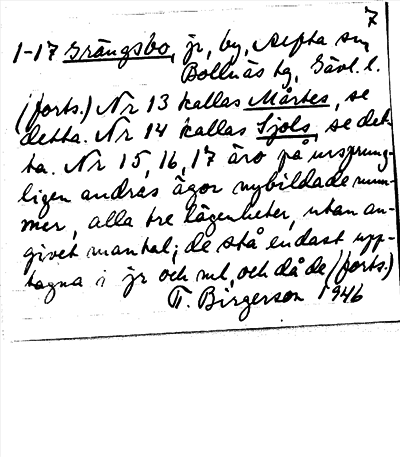 7
1-17 Grängsbo, jr, by, Alfta sn,
Bollnäs tg, Gävl. l.
(forts.) Nr 13 kallas Mårtes, se
detta. Nr 14 kallas Sjols, se det-
ta. Nr 15, 16, 17 äro på ursprung-
ligen andras ägor nybildade num-
mer, alla tre lägenheter, utan an-
givet mantal; de stå endast upp-
tagna i jr och ml, och då de (forts.)
T. Birgerson 1946